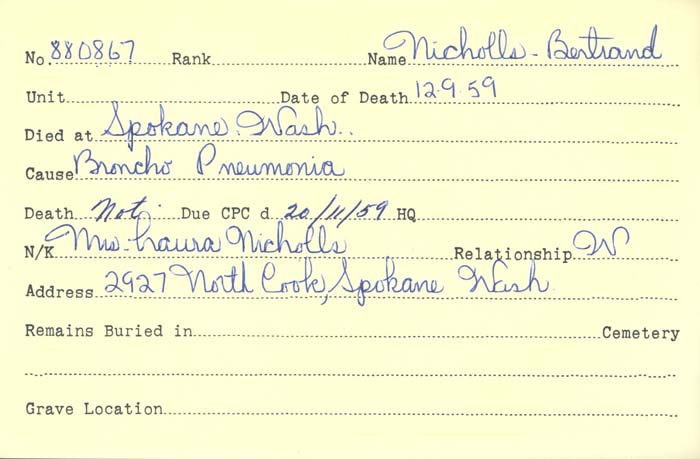 No. 880867 Rank Name Nicholls - Bertrand
Unit Date of Death 12.9.59
Died at Spokane. Wash..
Cause Broncho Pneumonia
Death Not. Due CPC d. 20/11/59 HQ
N/K Mrs. Laura Nicholls Relationship W
Address 2927 North Cook, Spokane Wash.
Remains Buried in Cemetery
Grave Location